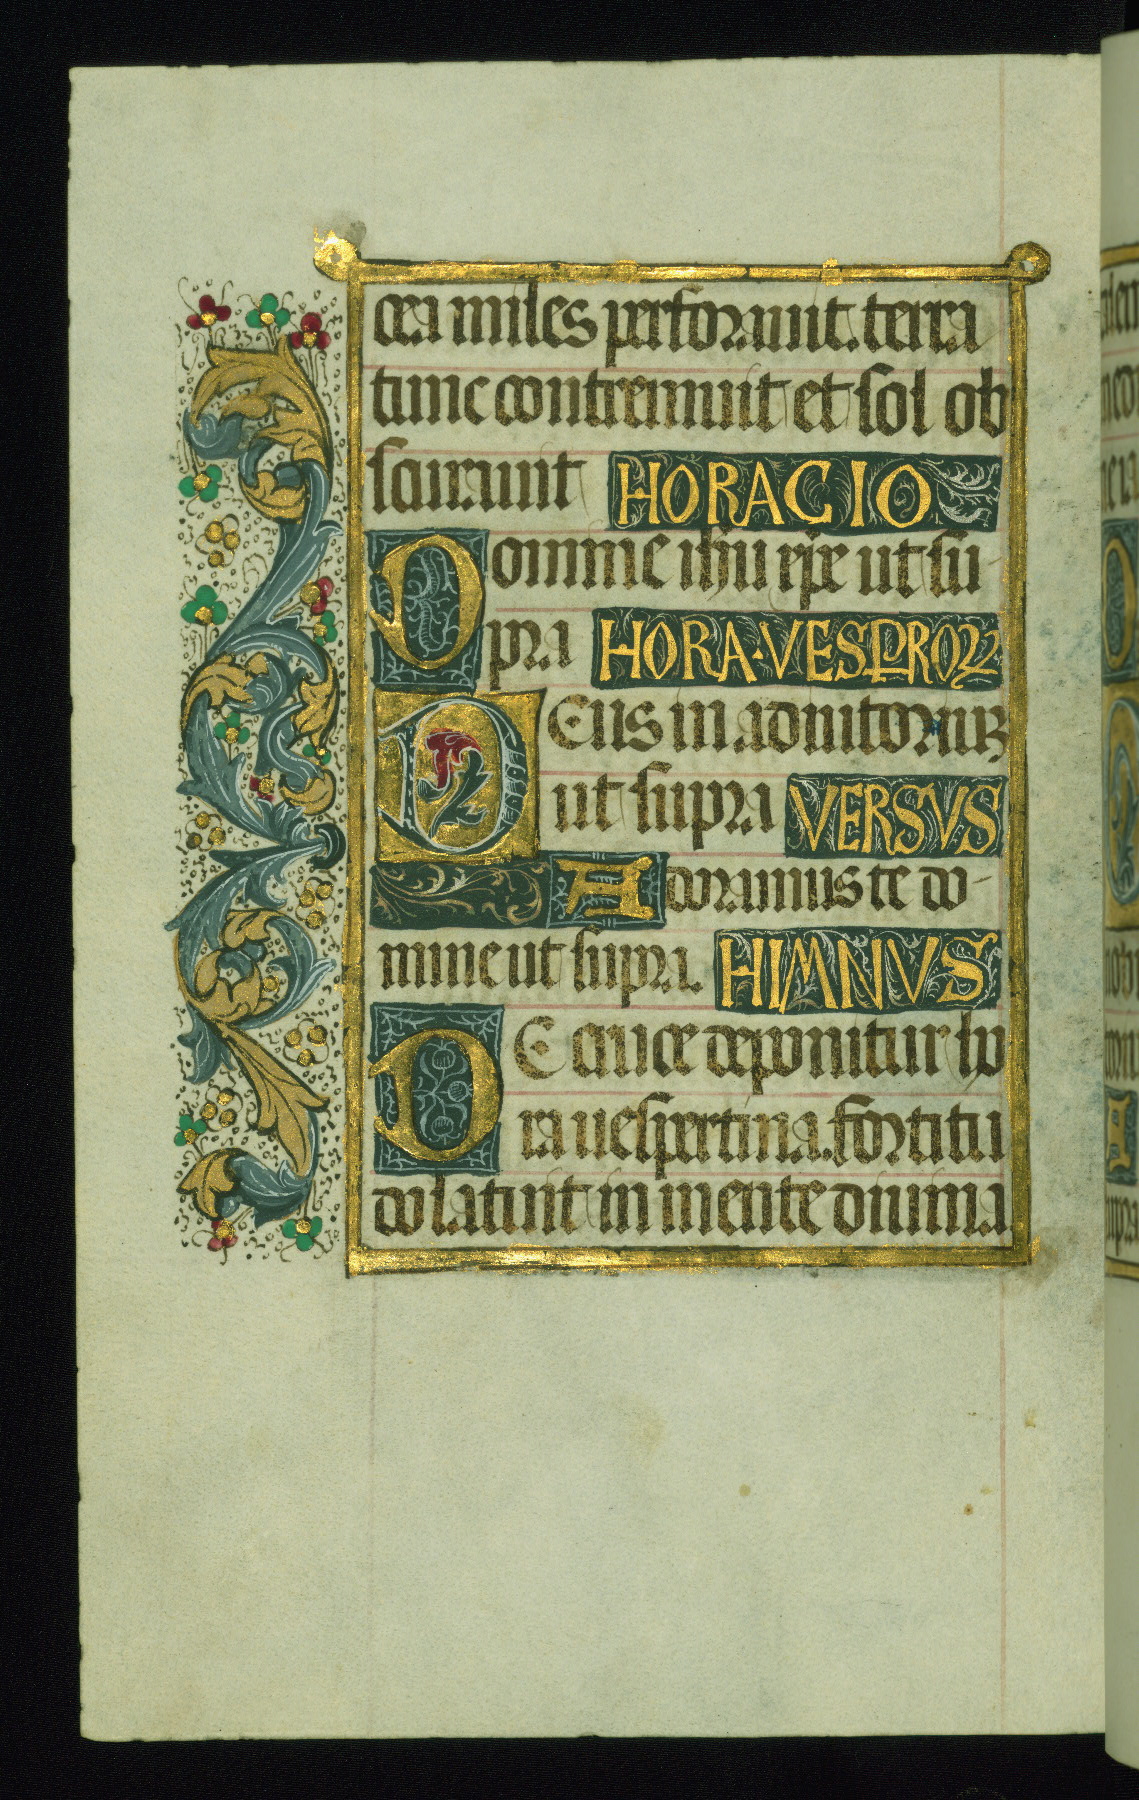 cea miles perforauit. terra
tunc contremuit et sol ob
scurauit HORACIO
Domine ihu xpe ut su-
pra HORA·VESPROꝜ
DEus in adiutoriuꝫ
ut supra VERSVS
Adoramus te do-
mine ut supra. HIMNVS
DE cruce deponitur ho
ra uespertina. fortitu
do latuit in mente diuina